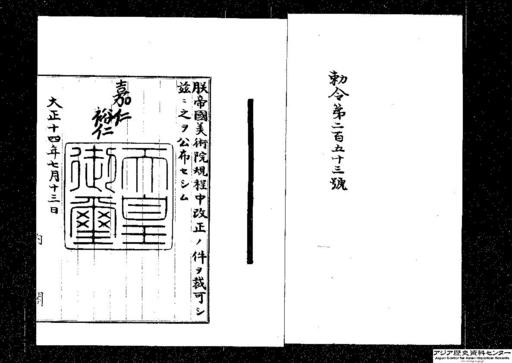 勅令第二百五十三號
朕帝國美術院規程中改正ノ件ヲ裁可シ
玆ニ之ヲ公布セシム
嘉仁
裕仁
天皇
御璽
大正十四年七月十三日
内
閣
アジア歴史資料センター
Japan Center for Asian Historical Records